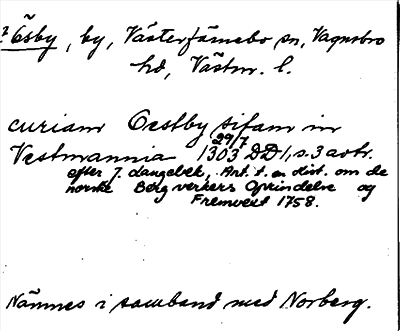 ? Ösby, by, Västerfärnebo sn, Vagnsbro
hd, Västm. l.
curiam Oestby sitam in
29/7
Vestmannia 1303 DD 1, s. 3 avtr.
efter J. Langebek, Ant. t. en dist. om de
norske Bergverkers Oprindelse og
Fremvext 1758.
Nämnes i samband med Norberg.